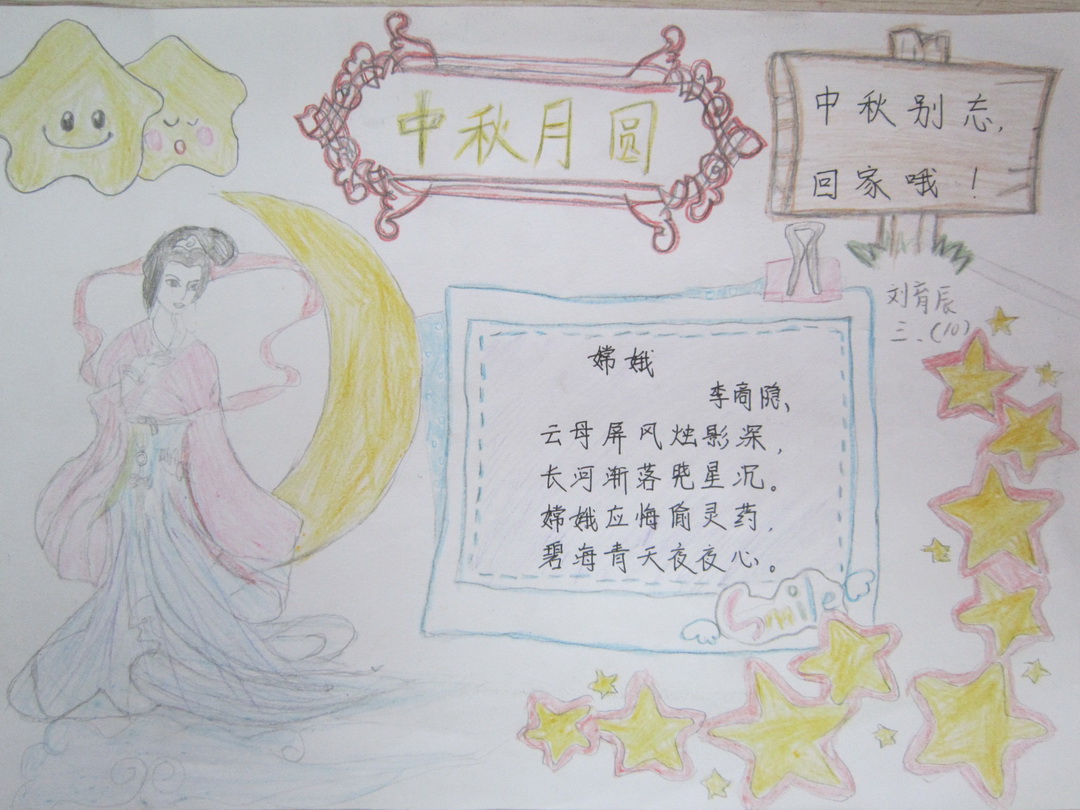 中秋月圆
中秋别忘,
回家哦！
刘育辰
三、(10)
嫦娥
李商隐、
云母屏风烛影深,
长河渐落晓星沉。
嫦娥应悔偷灵药,
碧海青天夜夜心。
Smile